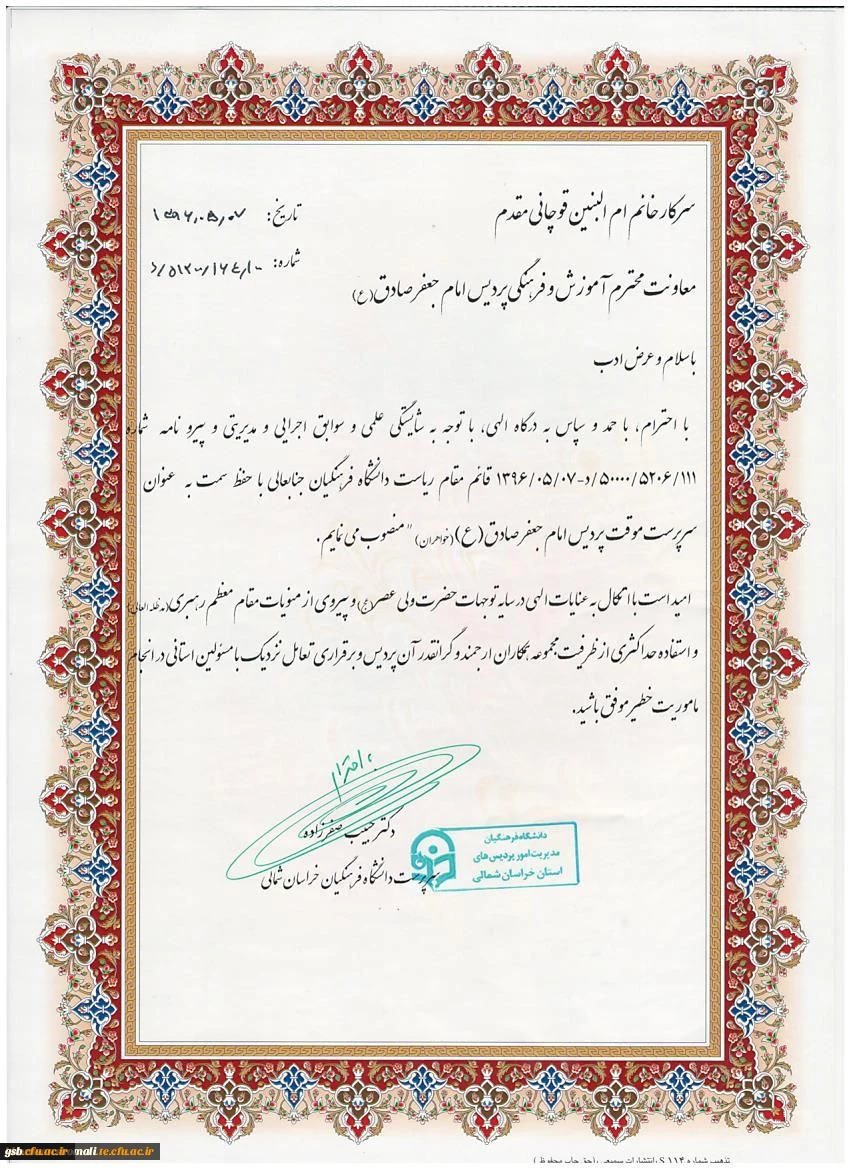 سرکار خانم ام البنین قوچانی مقدم
تاریخ: ۱۳۹۶،۰۵،۰۷
معاونت محترم آموزش و فرهنگی پردیس امام جعفر صادق (ع)
شماره:
با سلام و عرض ادب
با احترام، با حمد و سپاس به درگاه الهی، با توجه به شایستگی علمی و سوابق اجرایی و مدیریتی و پیرو نامه شماره
۵۰۰۰۰/۵۲۰۶/۱۱۱/د-۱۳۹۶/۰۵/۰۷ قائم مقام ریاست دانشگاه فرهنگیان جنابعالی با حفظ سمت به عنوان "
سرپرست موقت پردیس امام جعفر صادق (ع) (خواهران) " منصوب می نمایم.
امید است با اتکال به عنایات الهی در سایه توجهات حضرت ولی عصر (عج) و پیروی از منویات مقام معظم رهبری (مدظله العالی)
و استفاده حداکثری از ظرفیت مجموعه همکاران ارجمند و گرانقدر آن پردیس و برقراری تعامل نزدیک با مسئولین استانی در انجام
ماموریت خطیر موفق باشید.
با احترام
دکتر حبیب صفرزاده
سرپرست دانشگاه فرهنگیان خراسان شمالی
دانشگاه فرهنگیان
مدیریت امور پردیس های
استان خراسان شمالی
تذهیب شماره S ۱۱۴ انتشارات (حق چاپ محفوظ)
te.cfu.ac.ir